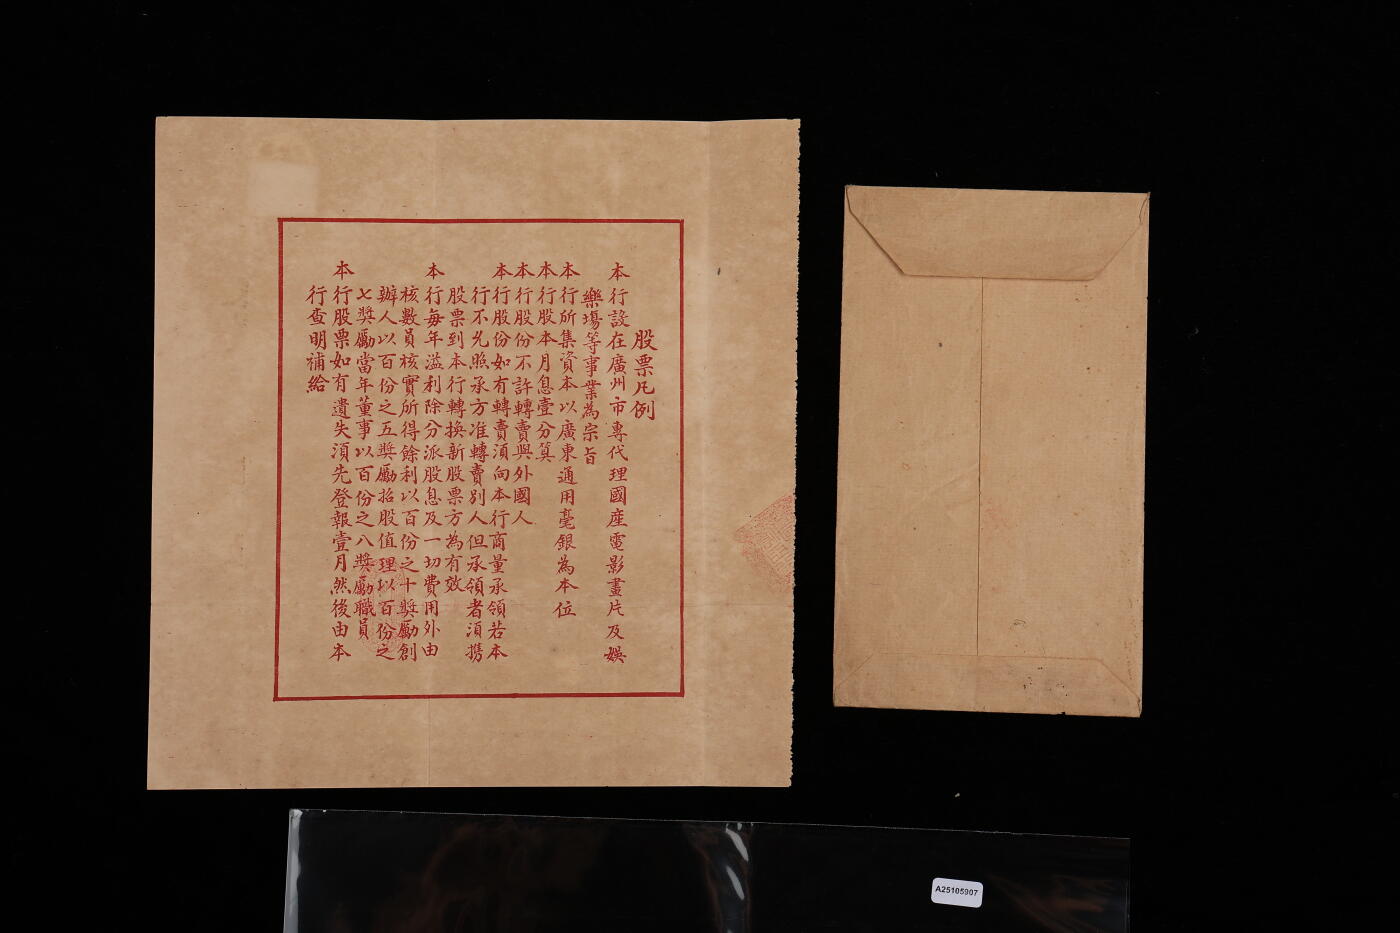 股票凡例
本行設在廣州市專代理國産電影畫片及娛
樂塲等事業為宗旨
本行所集資本以廣東通用毫銀為本位
本行股本月息壹分算
本行股份不許轉賣與外國人
本行股份如有轉賣須向本行商量承領若本
行不允照承方准轉賣別人但承領者須攜
股票到本行轉換新股票方為有效
本行每年溢利除分派股息及一切費用外由
核數員核實所得餘利以百份之十獎勵創
辦人以百份之五獎勵招股值理以百份之
七獎勵當年董事以百份之八獎勵職員
本行股票如有遺失須先登報壹月然後由本
行查明補給
A25105907